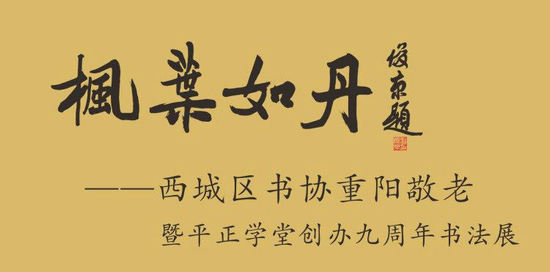 楓葉如丹
俊京題
——西城区书协重阳敬老
暨平正学堂创办九周年书法展